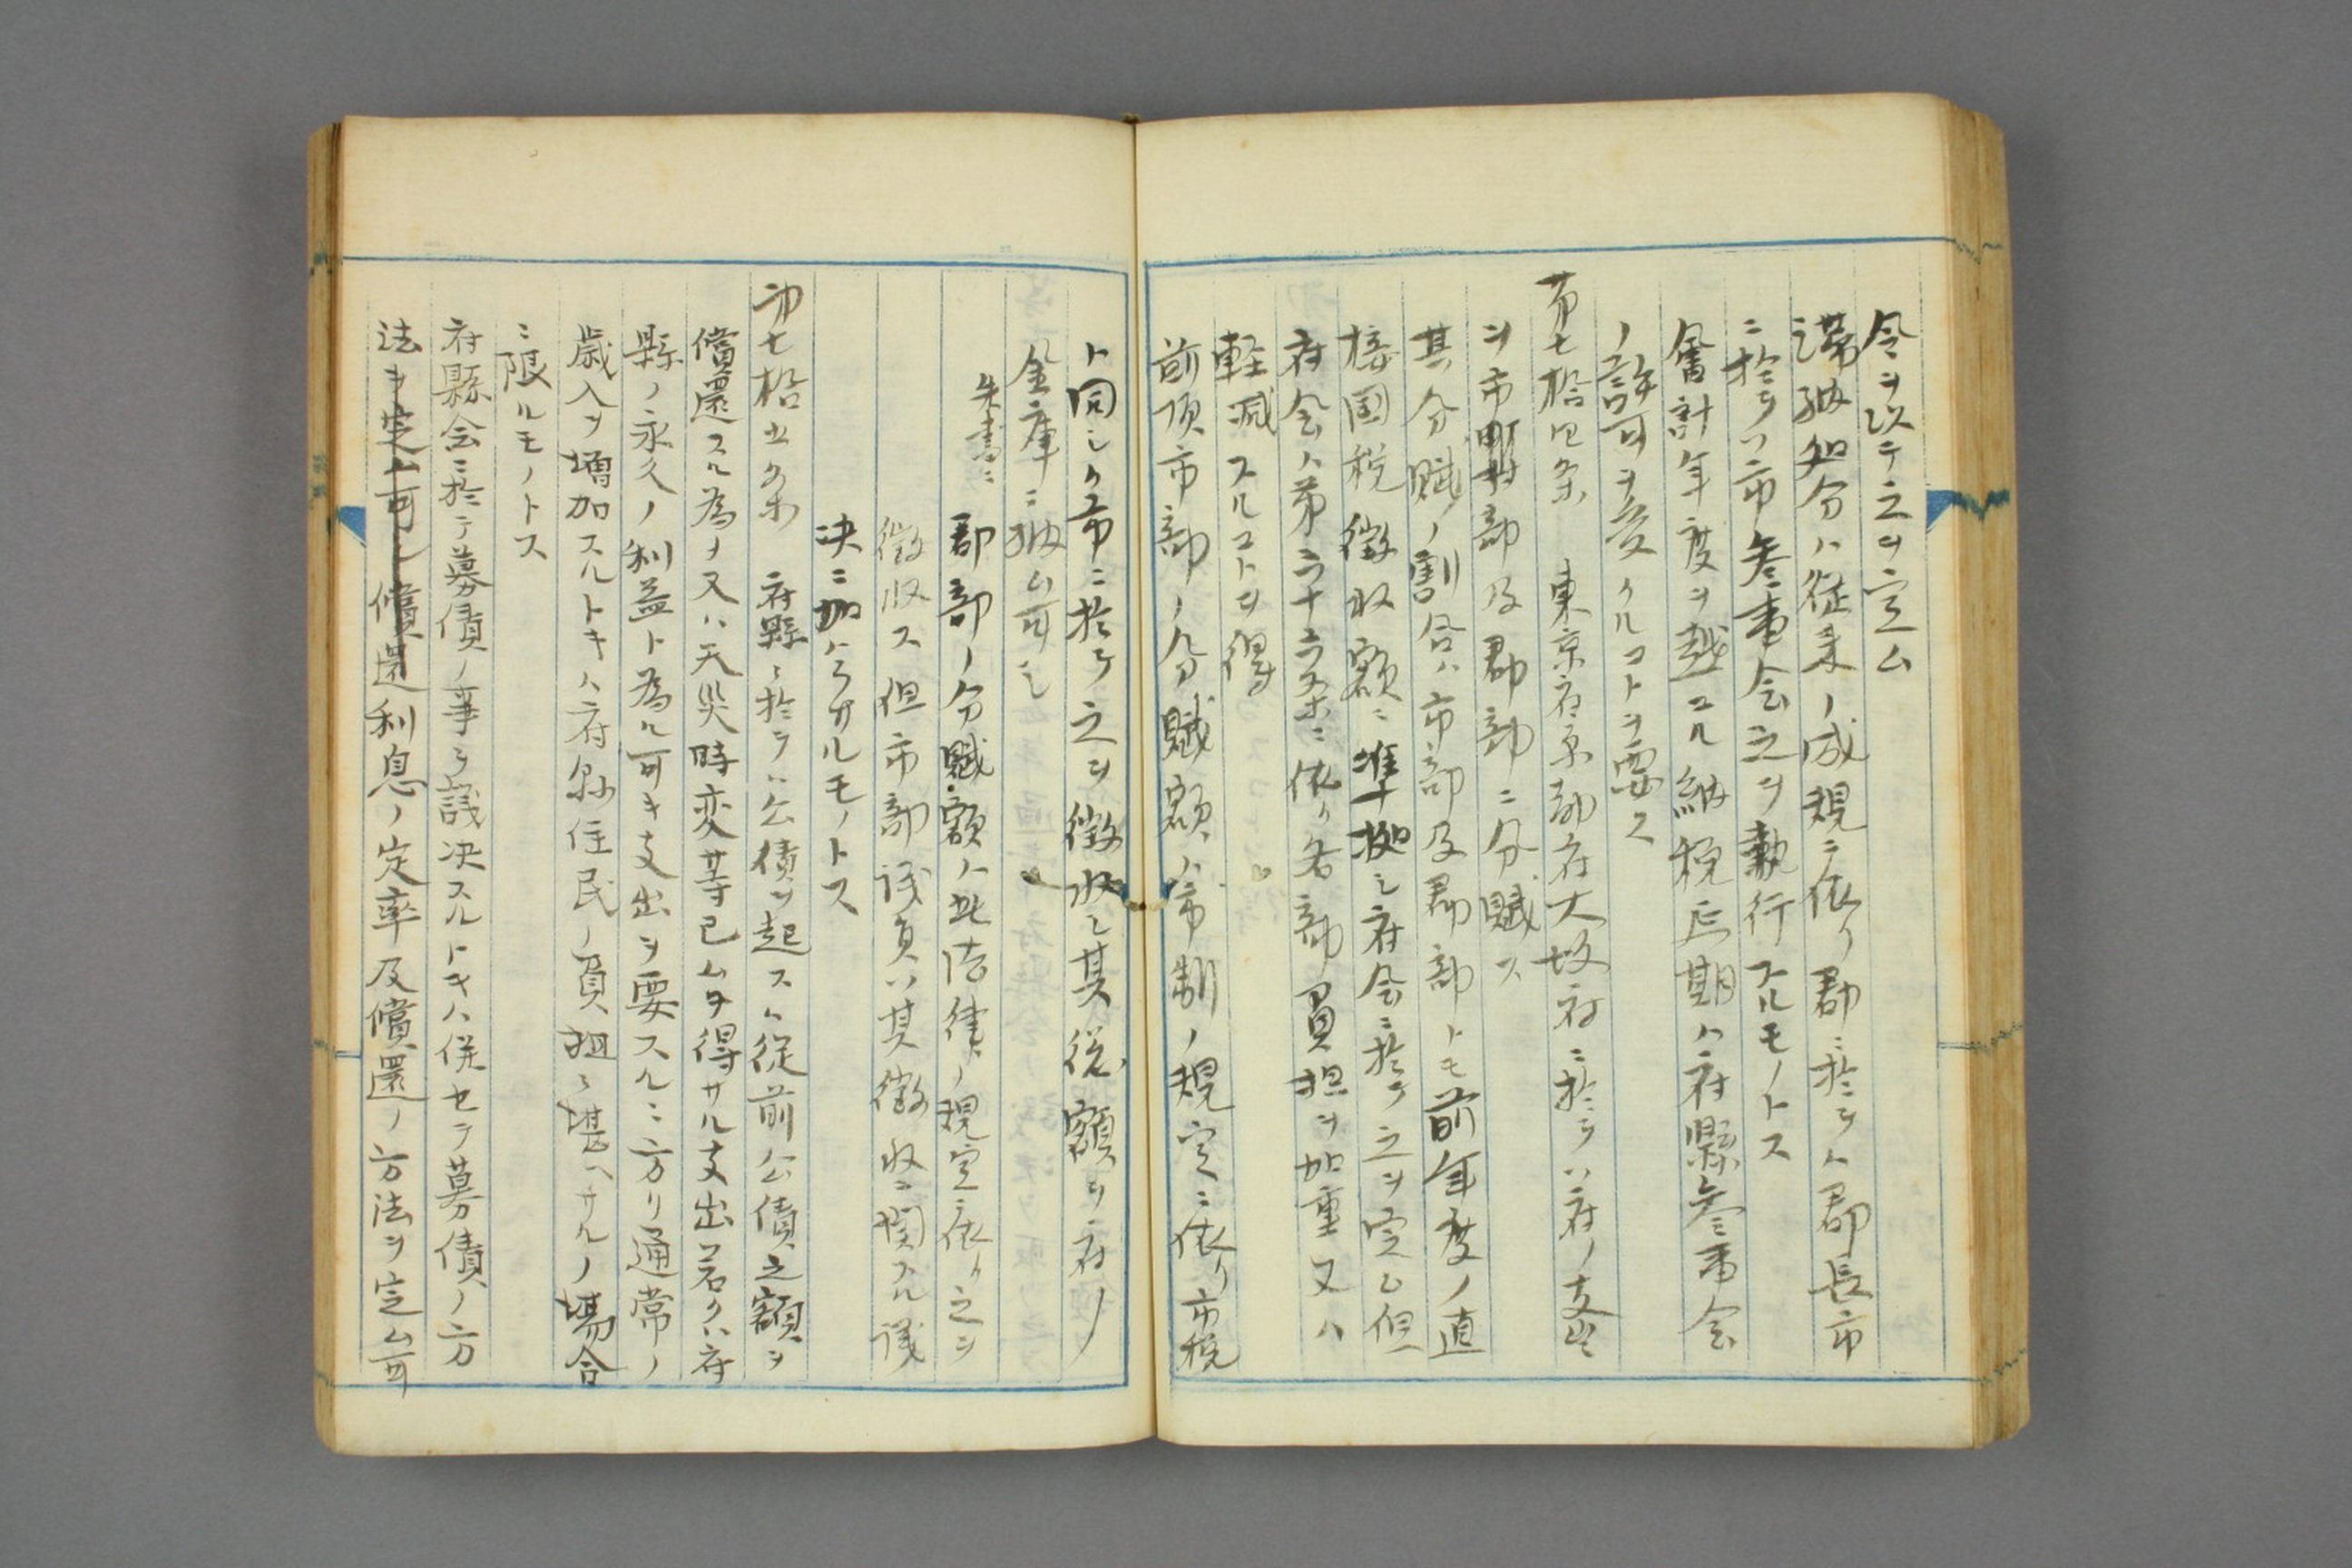 令ヲ以テ之ヲ定ム
滞納処分ハ従来ノ成規ニ依リ郡ニ於テハ郡長市
ニ於テハ市参事会之ヲ執行スルモノトス
会計年度ヲ越ユル納税延期ハ府県参事会
ノ許可ヲ受クルコトヲ要ス
第七拾四条 東京府京都府大坂府ニ於テハ府ノ支出
ヲ市部及郡部ニ分賦ス
其分賦ノ割合ハ市部及郡部トモ前年度ノ直
接国税徴収額ニ準拠シ府会ニ於テ之ヲ定ム但
府会ハ第六十六条ニ依リ各部負担ヲ加重又ハ
軽減スルコトヲ得
前項市部ノ分賦額ハ市制ノ規定ニ依リ市税
ト同シク市ニ於テ之ヲ徴収シ其総額ヲ府ノ
金庫ニ納ム可シ
朱書ニ
郡部ノ分賦額ハ此法律ノ規定ニ依リ之ヲ
徴収ス但市部議員ハ其徴収ニ関スル議
決ニ加ハラサルモノトス
第七拾五条 府県ニ於テハ公債ヲ起スハ従前公債之額ヲ
償還スル為メ又ハ天災時変等已ムヲ得サル支出若クハ府
県ノ永久ノ利益ト為ル可キ支出ヲ要スルニ方リ通常ノ
歳入ヲ増加スルトキハ府県住民ノ負担ニ堪ヘサルノ場合
ニ限ルモノトス
府県会ニ於テ募債ノ事ヲ議決スルトキハ併セテ募債ノ方
法ヲ定ム可シ償還利息ノ定率及償還ノ方法ヲ定ム可